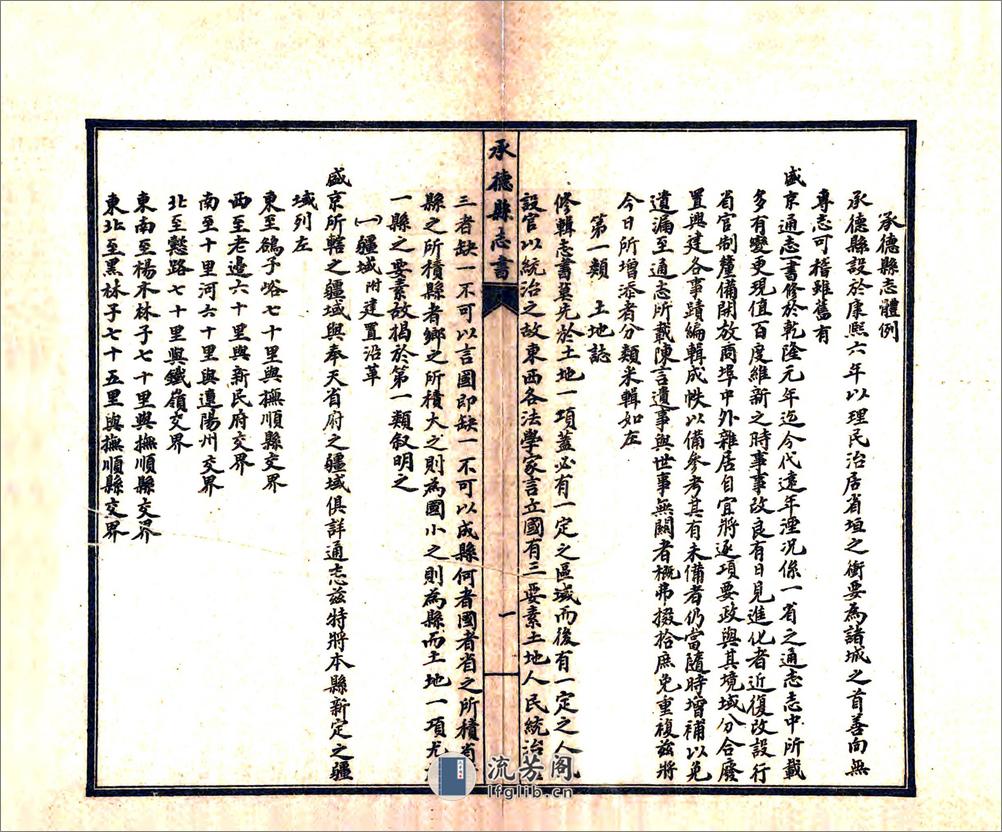 承德縣志體例
承德縣設於康熙六年以理民治居省垣之衝要為諸城之首善向無
專志可稽雖舊有
盛京通志一書修於乾隆元年迄今代遠年湮況係一省之通志志中所載
多有變更現值百度維新之時事事改良有日見進化者近復改設行
省官制釐備開放商埠中外雜居自宜將逐項要政與其境域分合廢
置興建各事蹟編輯成帙以備參考其有未備者仍當隨時增補以免
遺漏至通志所載陳言遺事與世事無關者概弗掇拾庶免重複茲將
今日所增添者分類釆輯如左
第一類 土地誌
修輯志書莫先於土地一項蓋必有一定之區域而後有一定之人民
設官以統治之故東西各法學家言立國有三要素土地人民統治
承德縣志書
一
三者缺一不可以言國即缺一不可以成縣何者國者省之所積省
縣之所積縣者鄉之所積大之則為國小之則為縣而土地一項尤
一縣之要素故揭於第一類叙明之
㈠疆域附建置沿革
盛京所轄之疆域與奉天省府之疆域俱詳通志茲特將本縣新定之疆
域列左
東至鷂子峪七十里與撫順縣交界
西至老邊六十里與新民府交界
南至十里河六十里與遼陽州交界
北至懿路七十里與鐵嶺交界
東南至楊木林子七十里與撫順縣交界
東北至黑林子七十五里與撫順縣交界
流芳阁
lfglib.cn